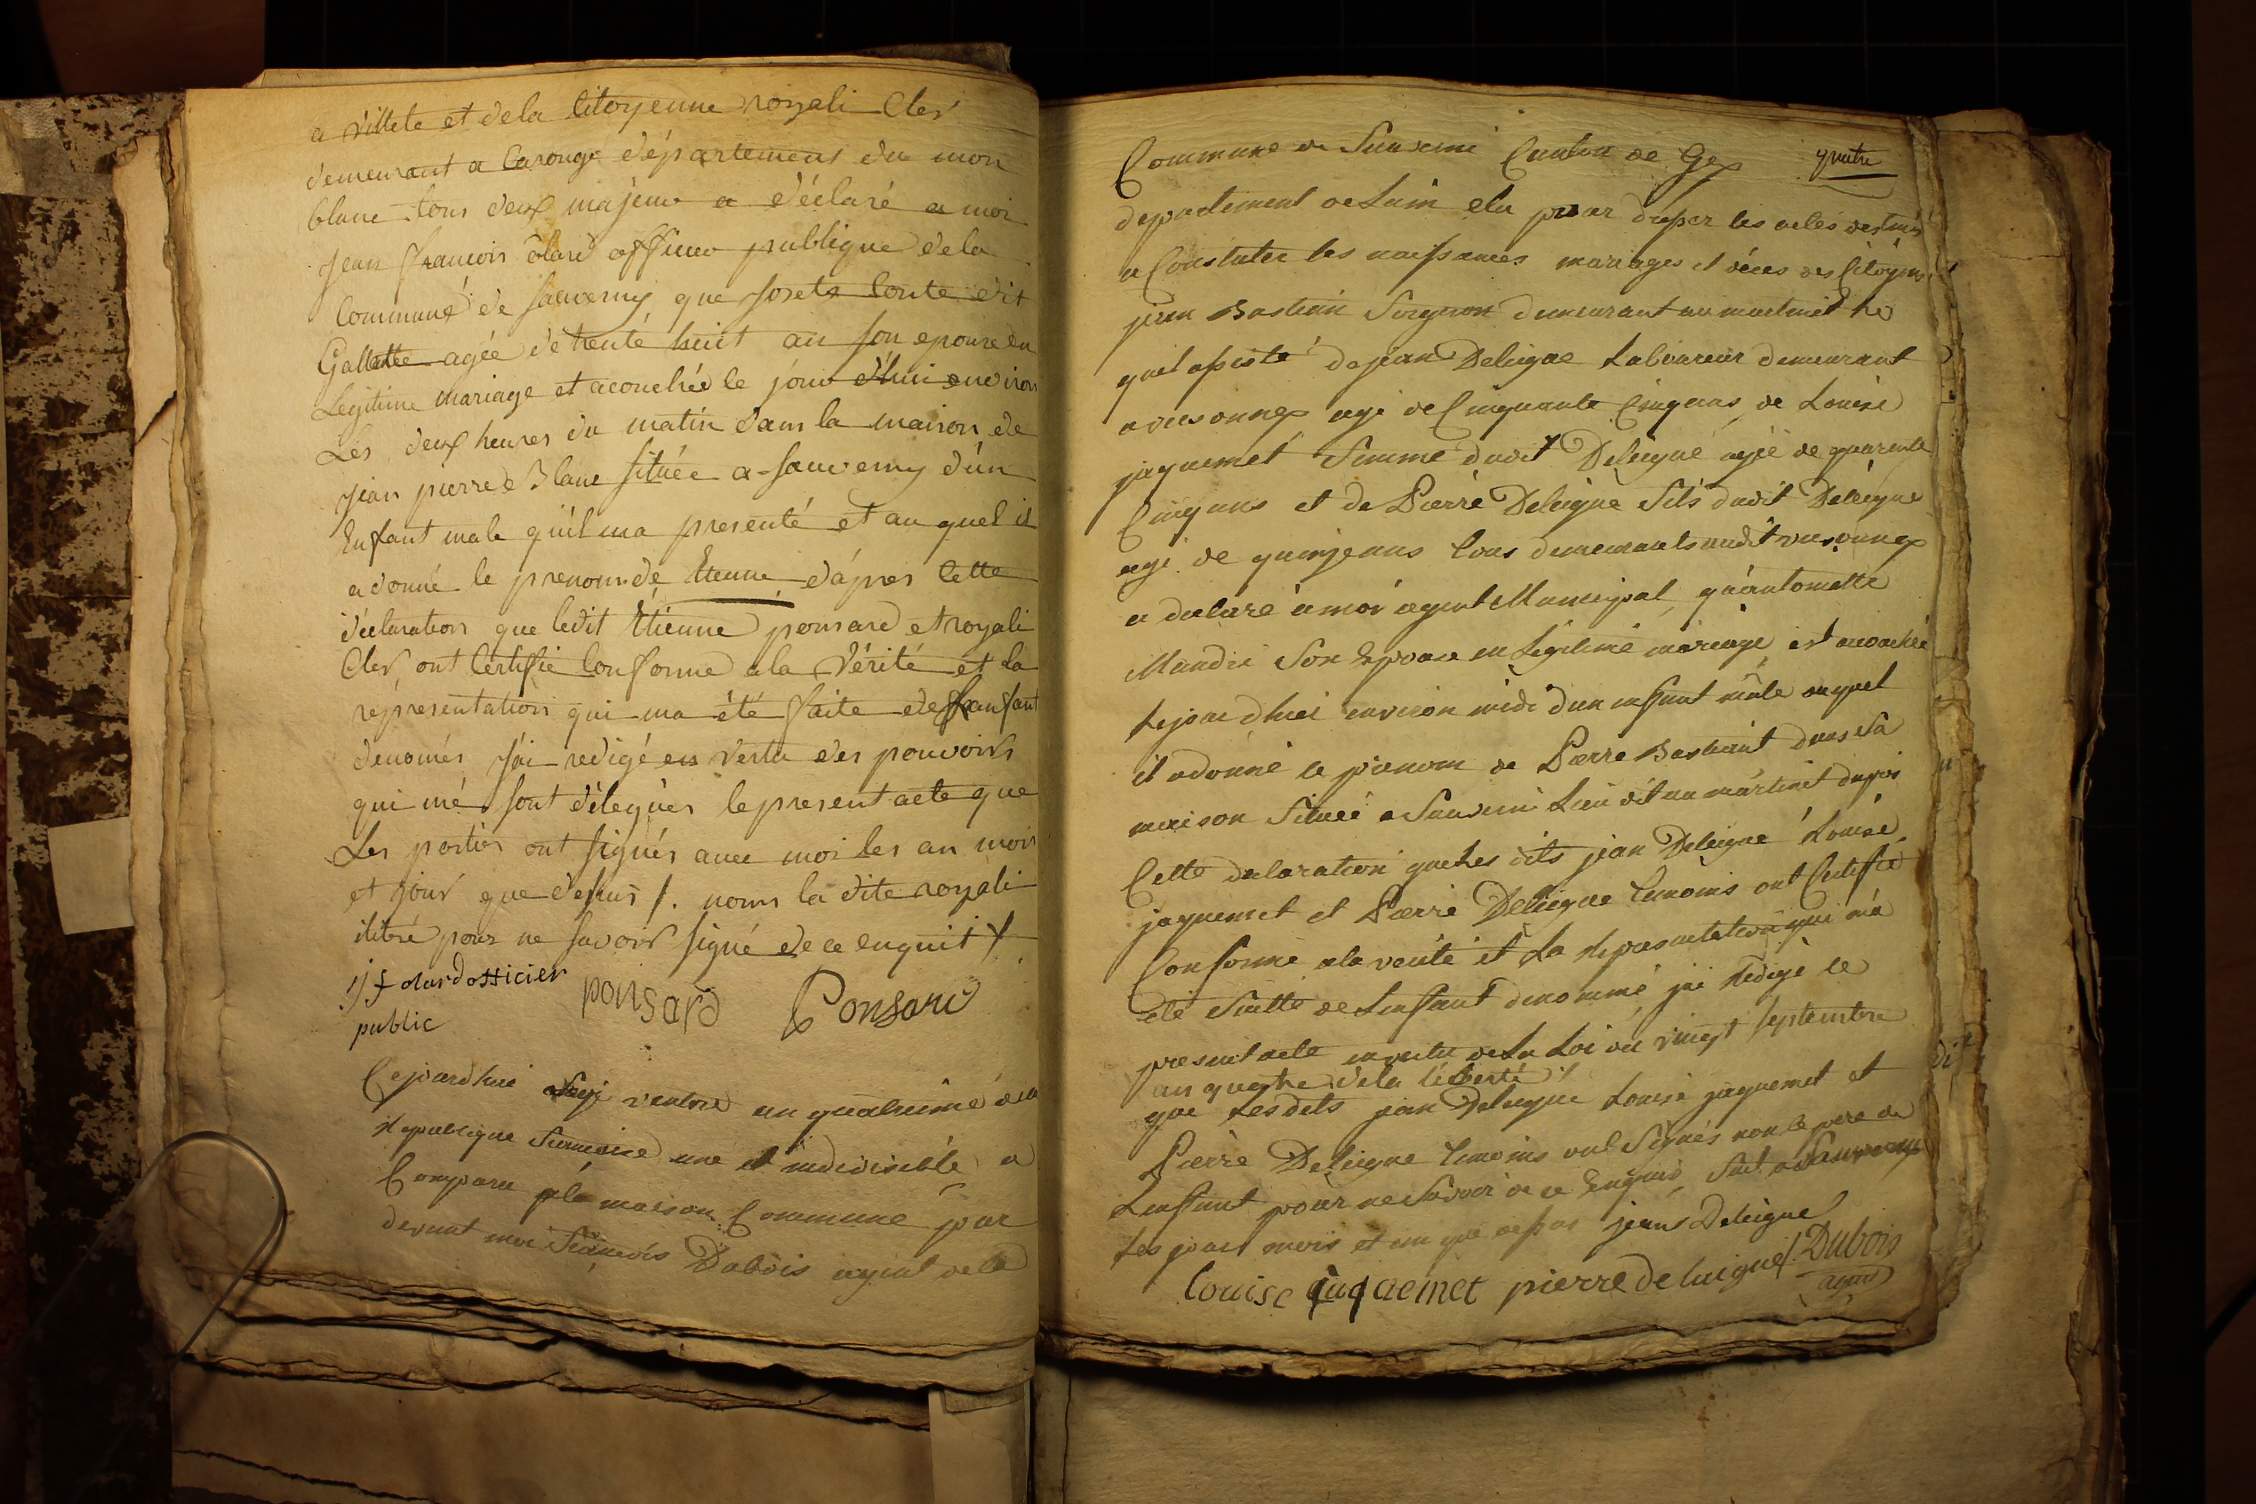 a villete et dela Citoyenne royali Cler
demeurant a Carouge département du mon
blanc tous deux majeur a déclaré a moi
Jean francois olard officier publique dela
Commune de sauverny que Josete Conte dit
Gallatte agée de trente huit an son epouse en
Legitime mariage et acouchée le jour d'hui environ
Les deux heures du matin dans la maison de
Jean pierre Blanc située a sauverny d'un
Enfant male qu'il ma presenté et au quel il
a donné le prenom de Etienne d'apres Cette
déclaration que ledit Etienne ponsard et royali
Cler ont Certifié Conforme a la vérité et la
représentation qui ma été faite de lanfant
denomés J'ai redigé en vertu des pouvoirs
qui mé sont délegués le present acte que
Les parties ont signés avec moi les an mois
et jour que dessus /. nons la dite royali
ilitré pour ne savoir signé de ce enquit /.
jf olard officier
public
ponsard Ponsard
Cejourdhui ventose an quatrieme de la
republique francoise une et indivisible a
Comparu a la maison Commune par
devant moi François Dubois agent de la
Commune de Sauverni Canton de Gex quatre
departement de Lain elu pour dresser les actes destinés
a Constater les naissances mariages et déces des Citoyens
jean Bastian forgeron demeurant au martinet le
quel assisté de jean Deleigue Laboureur demeurant
a versonnex agé de Cinquante Cinq ans de Louise
jaquemet femme dudit Deleigue agée de quarente
Cinq ans et de Pierre Deleigue fils dudit Deleigue
agé de quinze ans tous demeurants audit versonnex
a declaré a moi agent Municipal qu'antoinette
Mandri son Epouse en Legitime mariage est acouchée
Le jour dhui environ midi d'un enfant mâle auquel
il a donné le prenom de Pierre Bastiant dans sa
maison Située a Sauverni Lieu dit au martinet dapres
Cette declaration que Les dits jean Deleigue Louise
jaquemet et Pierre Deleigue temoins ont Certifié
Conforme a la verité et La representation qui m'a
été faitte de Lenfant denommé jai redigé le
present acte en vertu de La Loi du vingt septembre
an quatre de la liberté /
que Lesdits jean Deleigue Louise jaquemet et
Pierre Deleigue temoins ont Signés non le pere de
Lenfant pour ne Savoir de ce Enquis fait a Sauverny
Les jour mois et an que dessus jean Deleigue
Louise jaquemet pierre deleigue f. Dubois
agent